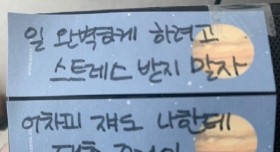 일 완벽하게 하려고
스트레스 받지 말자
어차피 쟤도 나한테